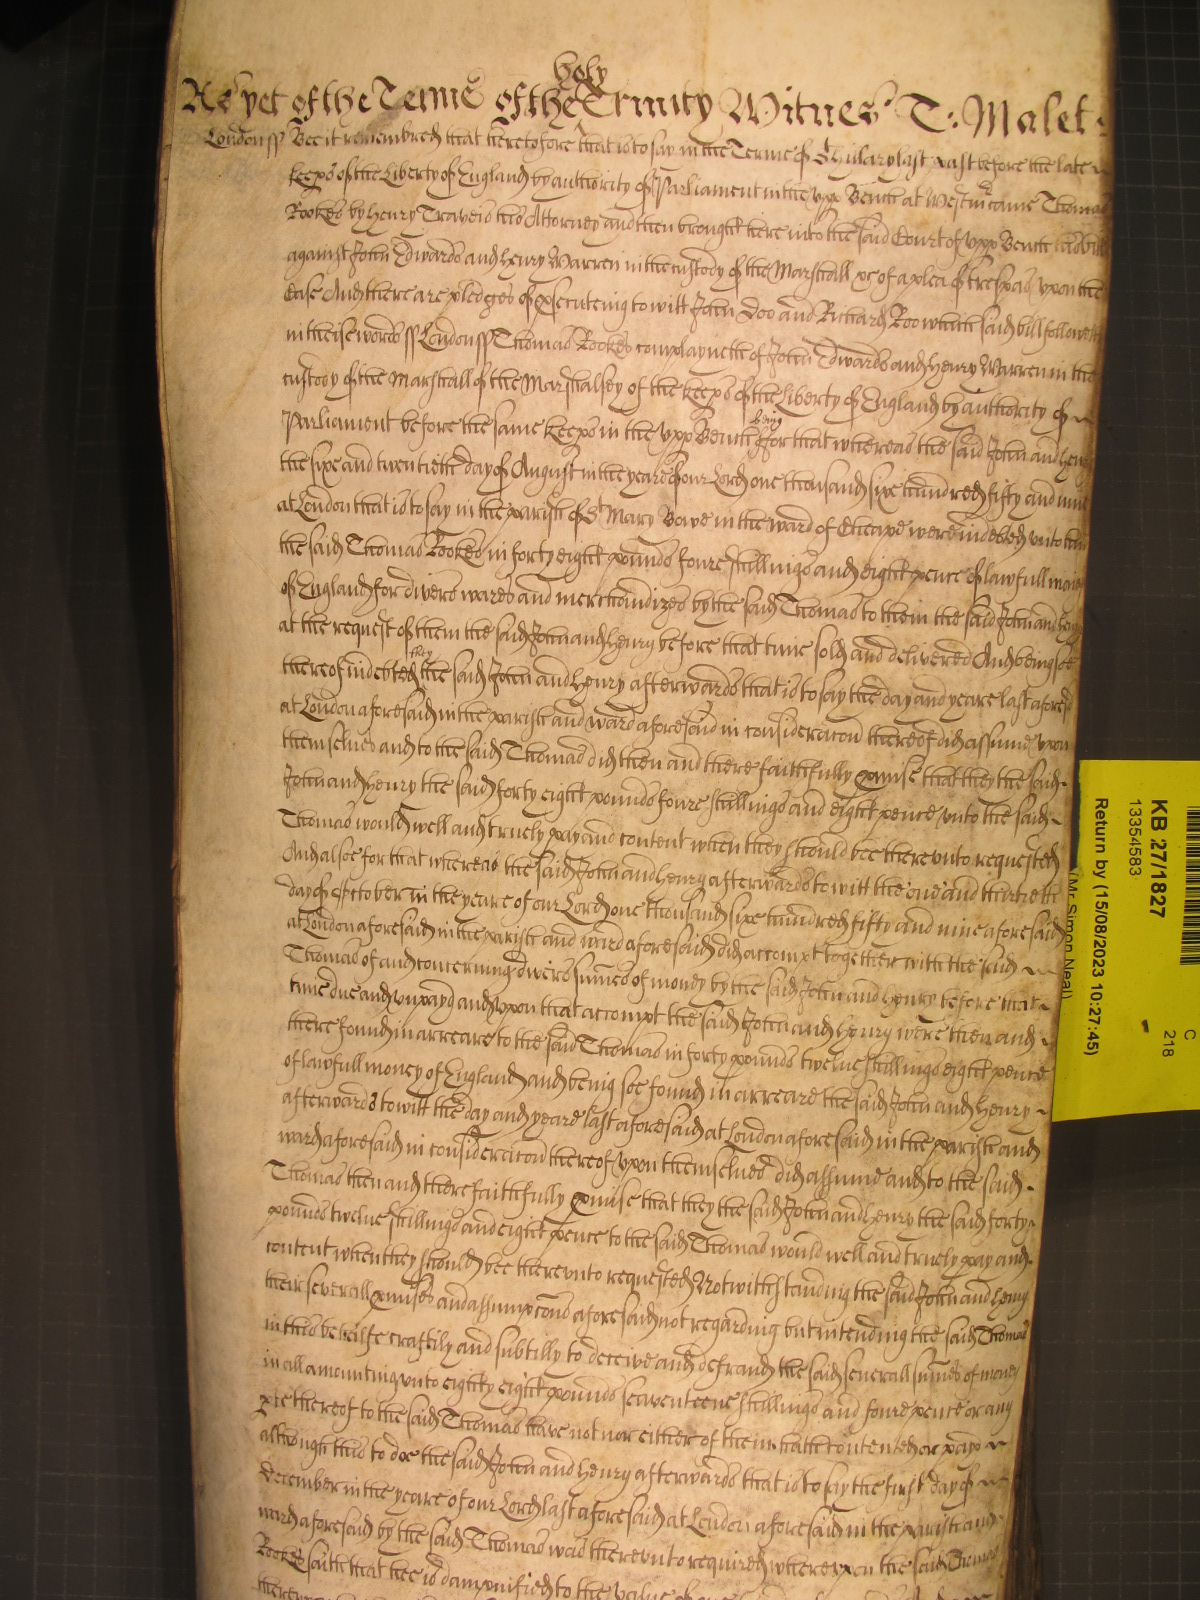 As yet of the Terme of the holy Trinity Witnes T: Malet
London ss Bee it remembred that heretofore that is to say in the Terme of St Hillary last past before the late
keeps of the Liberty of England by authority of Parliament in the upp Bench at Westmr came Thomas
Rookes by Henry Traveis his Attorney and then brought here into the said Court of upp Bench his bill
against John Edwards and Henry Warren in the custody of the Marshall &c of a plea of trespas upon the
Case And there are pledges of prsecuteing to witt John Doo and Richard Roo which said bill followeth
in theise words ss London ss Thomas Rookes complayneth of John Edwards and Henry Warren in the
custody of the Marshall of the Marshalsey of the keeps of the Liberty of England by authority of
Parliament before the same keeps in the upp Bench being For that whereas the said John and Henry
the sixe and twentieth day of August in the yeare of our Lord one thousand sixe hundred fifty and nine
at London that is to say in the parish of St Mary Bowe in the ward of Cheape were indebted unto him
the said Thomas Rookes in forty eight pounds foure shillings and eight pence of lawfull money
of England for divers wares and merchandizes by the said Thomas to them the said John and Henry
at the request of them the said John and Henry before that time sold and delivered And being soe
thereof indebted they the said John and Henry afterwards that is to say the day and yeare last aforesd
at London aforesaid in the parish and ward aforesaid in consideracon thereof did assume upon
themselves and to the said Thomas did then and there faithfully prmise that they the said
John and Henry the said forty eight pounds foure shillings and eight pence unto the said
Thomas would well and truely pay and content when they should bee thereunto requested
And alsoe for that whereas the said John and Henry afterwards to witt the one and thirtieth
day of October in the yeare of our Lord one thousand sixe hundred fifty and nine aforesaid
at London aforesaid in the parish and ward aforesaid did accompt together with the said
Thomas of and concerning divers summes of money by the said John and Henry before that
time due and unpayd and upon that accompt the said John and Henry were then and
there found in arreare to the said Thomas in forty pounds twelve shillings eight pence
of lawfull money of England and being soe found in arreare the said John and Henry
afterwards to witt the day and yeare last aforesaid at London aforesaid in the parish and
ward aforesaid in consideracon thereof upon themselves did assume and to the said
Thomas then and there faithfully prmise that they the said John and Henry the said forty
pounds twelve shillings and eight pence to the said Thomas would well and truely pay and
content when they should bee thereunto requested Notwithstanding the said John and Henry
their severall prmises and assumpcons aforesaid not regarding but intending the said Thomas
in this behalfe craftily and subtilly to deceive and defraud the said severall summes of money
in all amounting unto eighty eight pounds seaventeene shillings and foure pence or any
pte thereof to the said Thomas have not nor either of them hath contented or payd
although thus to doe the said John and Henry afterwards that is to say the first day of
December in the yeare of our Lord last aforesaid at London aforesaid in the parish and
ward aforesaid by the said Thomas was thereunto required whereupon the said Thomas
Rookes saith that hee is dampnified to the value
KB 27/1827
13354583
C
218
Return by (15/08/2023 10:27:45)
(Mr Simon Neal)